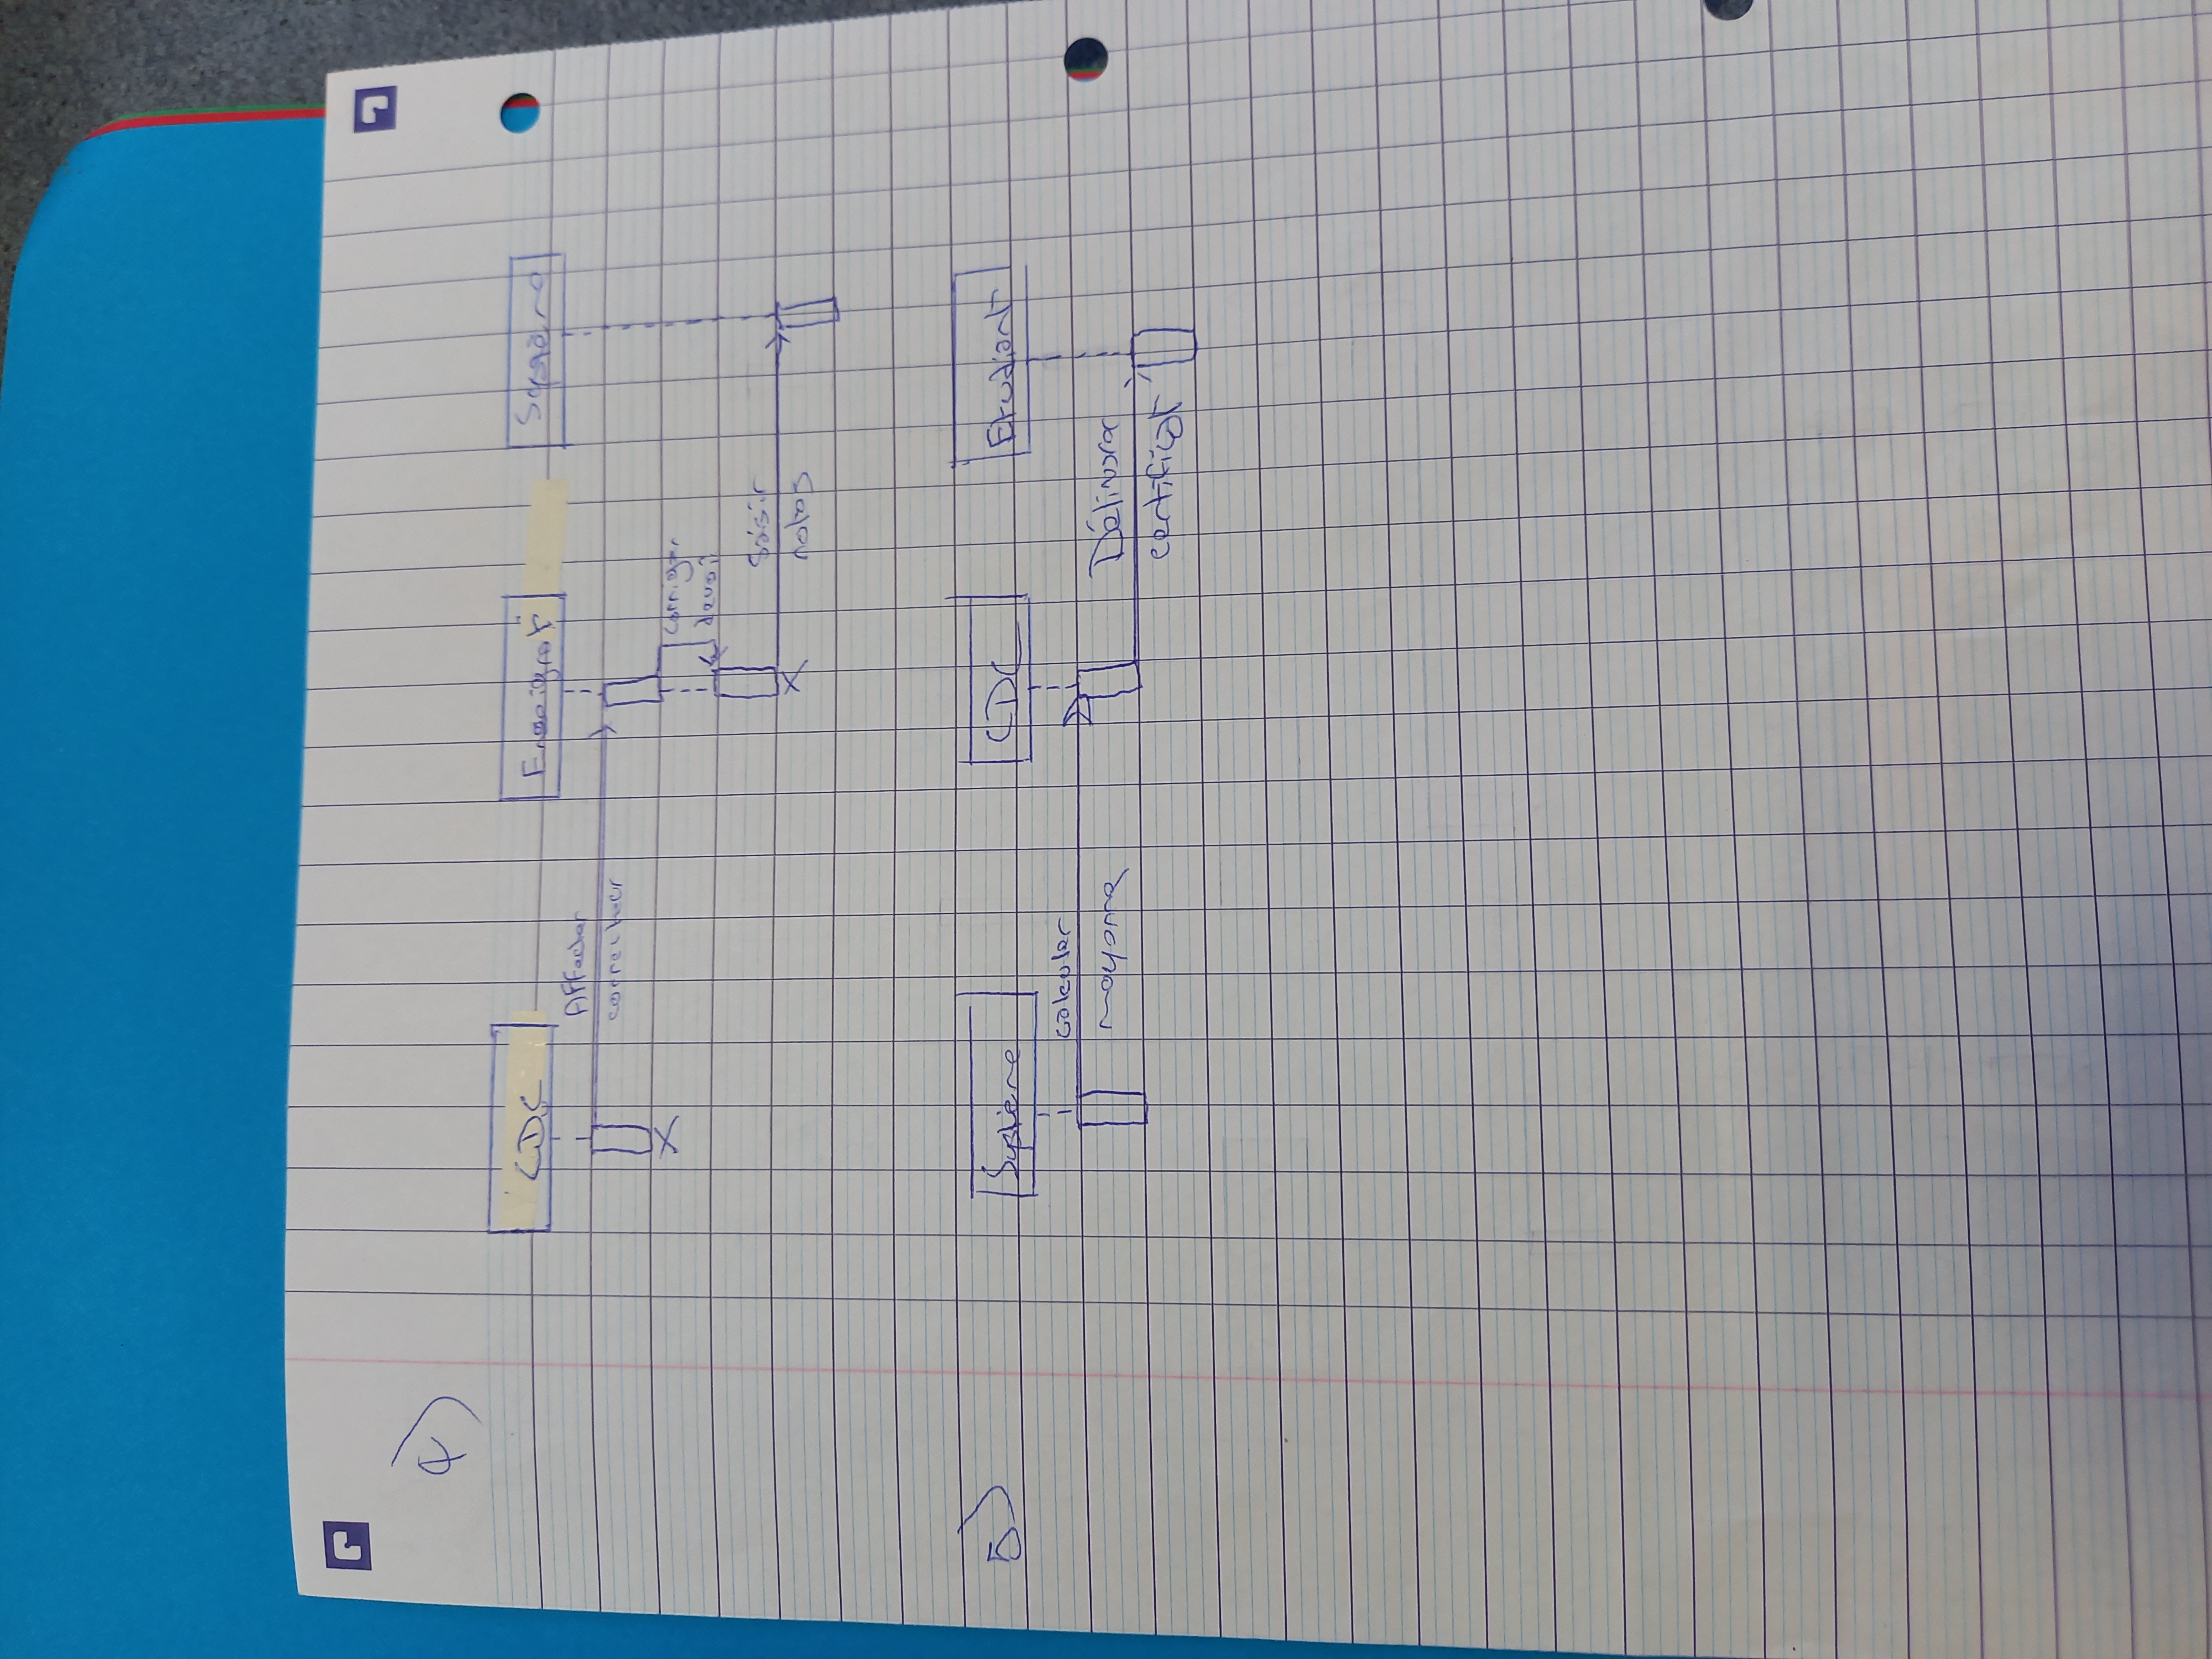 4)
CDC
Enseignant
Système
Affecter
correcteur
corriger
devoir
Saisir
notes
5)
Système
CDC
Etudiant
calculer
moyenne
Délivrer
certificat